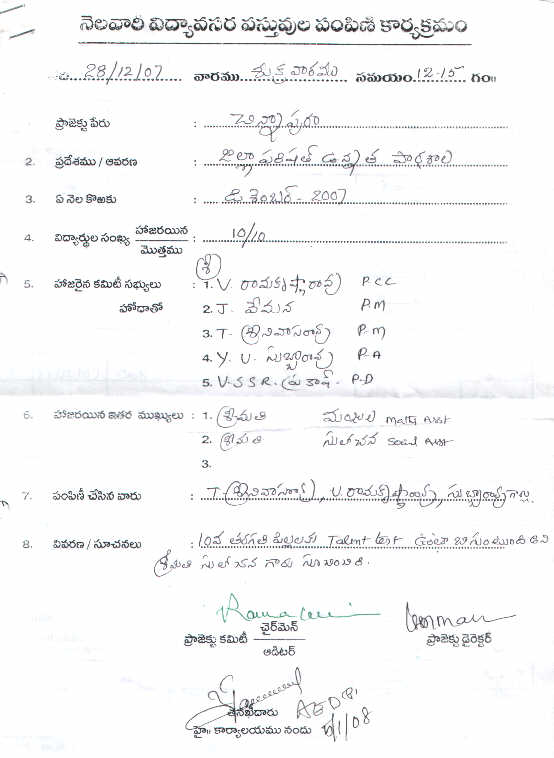 నెలవారీ విద్యావసర వస్తువుల పంపిణీ కార్యక్రమం
28/12/07 వారము శుక్రవారము సమయం 12-15 గం॥
ప్రాజెక్టు పేరు :
2. ప్రదేశము / ఆవరణ : జిల్లా పరిషత్ ఉన్నత పాఠశాల
3. ఏ నెల కొఱకు : డిశెంబర్ - 2007
4. విద్యార్థుల సంఖ్య హాజరయిన : 10/10
మొత్తము
5. హాజరైన కమిటీ సభ్యులు : 1. V. రామకృష్ణారావు P.C.C
హోదాతో 2. J. వేమన P.M
3. T. శ్రీనివాసరావు P.M
4. Y. V. సుబ్బారావు P-A
5. V.S.S.R. ప్రకాష్. P-D
6. హాజరయిన ఇతర ముఖ్యులు : 1. శ్రీమతి మంజుల Maths Asst
2. శ్రీమతి సులోచన Social Asst
3.
7. పంపిణీ చేసిన వారు : T. శ్రీనివాసరావు, V. రామకృష్ణారావు, సుబ్బారావు గార్లు.
8. వివరణ / సూచనలు : 10వ తరగతి పిల్లలకు Talent test బాగుంటుందని
శ్రీమతి సులోచన గారు సూచించిరి.
చైర్‌మెన్
ప్రాజెక్టు కమిటీ ప్రాజెక్టు డైరెక్టర్
ఆడిటర్
తనిఖీదారు
హై॥ కార్యాలయము నందు 1/1/08